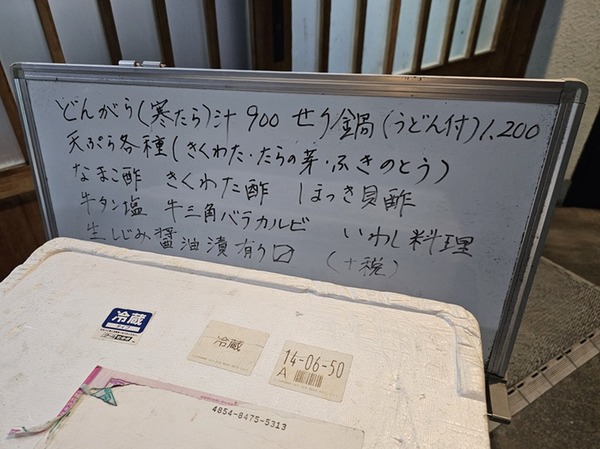 どんがら(寒たら)汁 900 せり鍋(うどん付)1,200
天ぷら各種(きくわた・たらの芽・ふきのとう)
なまこ酢 きくわた酢 ほっき貝酢
牛タン塩 牛三角バラカルビ いわし料理
生しじみ醤油漬有り〼 (+税)
冷蔵
冷蔵
14-06-50
A
4854-8475-5313